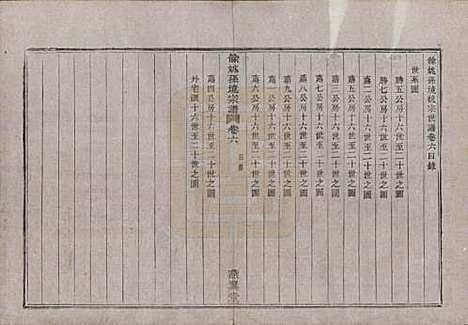 餘姚孫境宗世譜卷六目錄
世系圖
勝五公房十六世至二十世之圖
勝七公房十六世至二十世之圖
嘉二公房十六世至二十世之圖
嘉五公房十六世至二十世之圖
嘉七公房十六世至二十世之圖
嘉九公房十六世至二十世之圖
嘉一公房十六世至二十世之圖
嘉六公房十六世至二十世之圖
餘姚孫境宗譜
卷六
目錄
燕翼堂
嘉四公房十六世至二十世之圖
外宅派十六世至二十世之圖